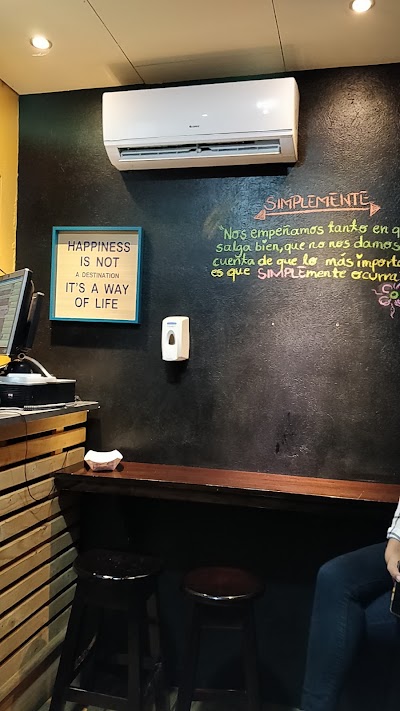 SIMPLEMENTE
"Nos empeñamos tanto en q
salga bien, que no nos damos
cuenta de que lo más importa
es que SIMPLEmente ocurra
HAPPINESS
IS NOT
A DESTINATION
IT'S A WAY
OF LIFE